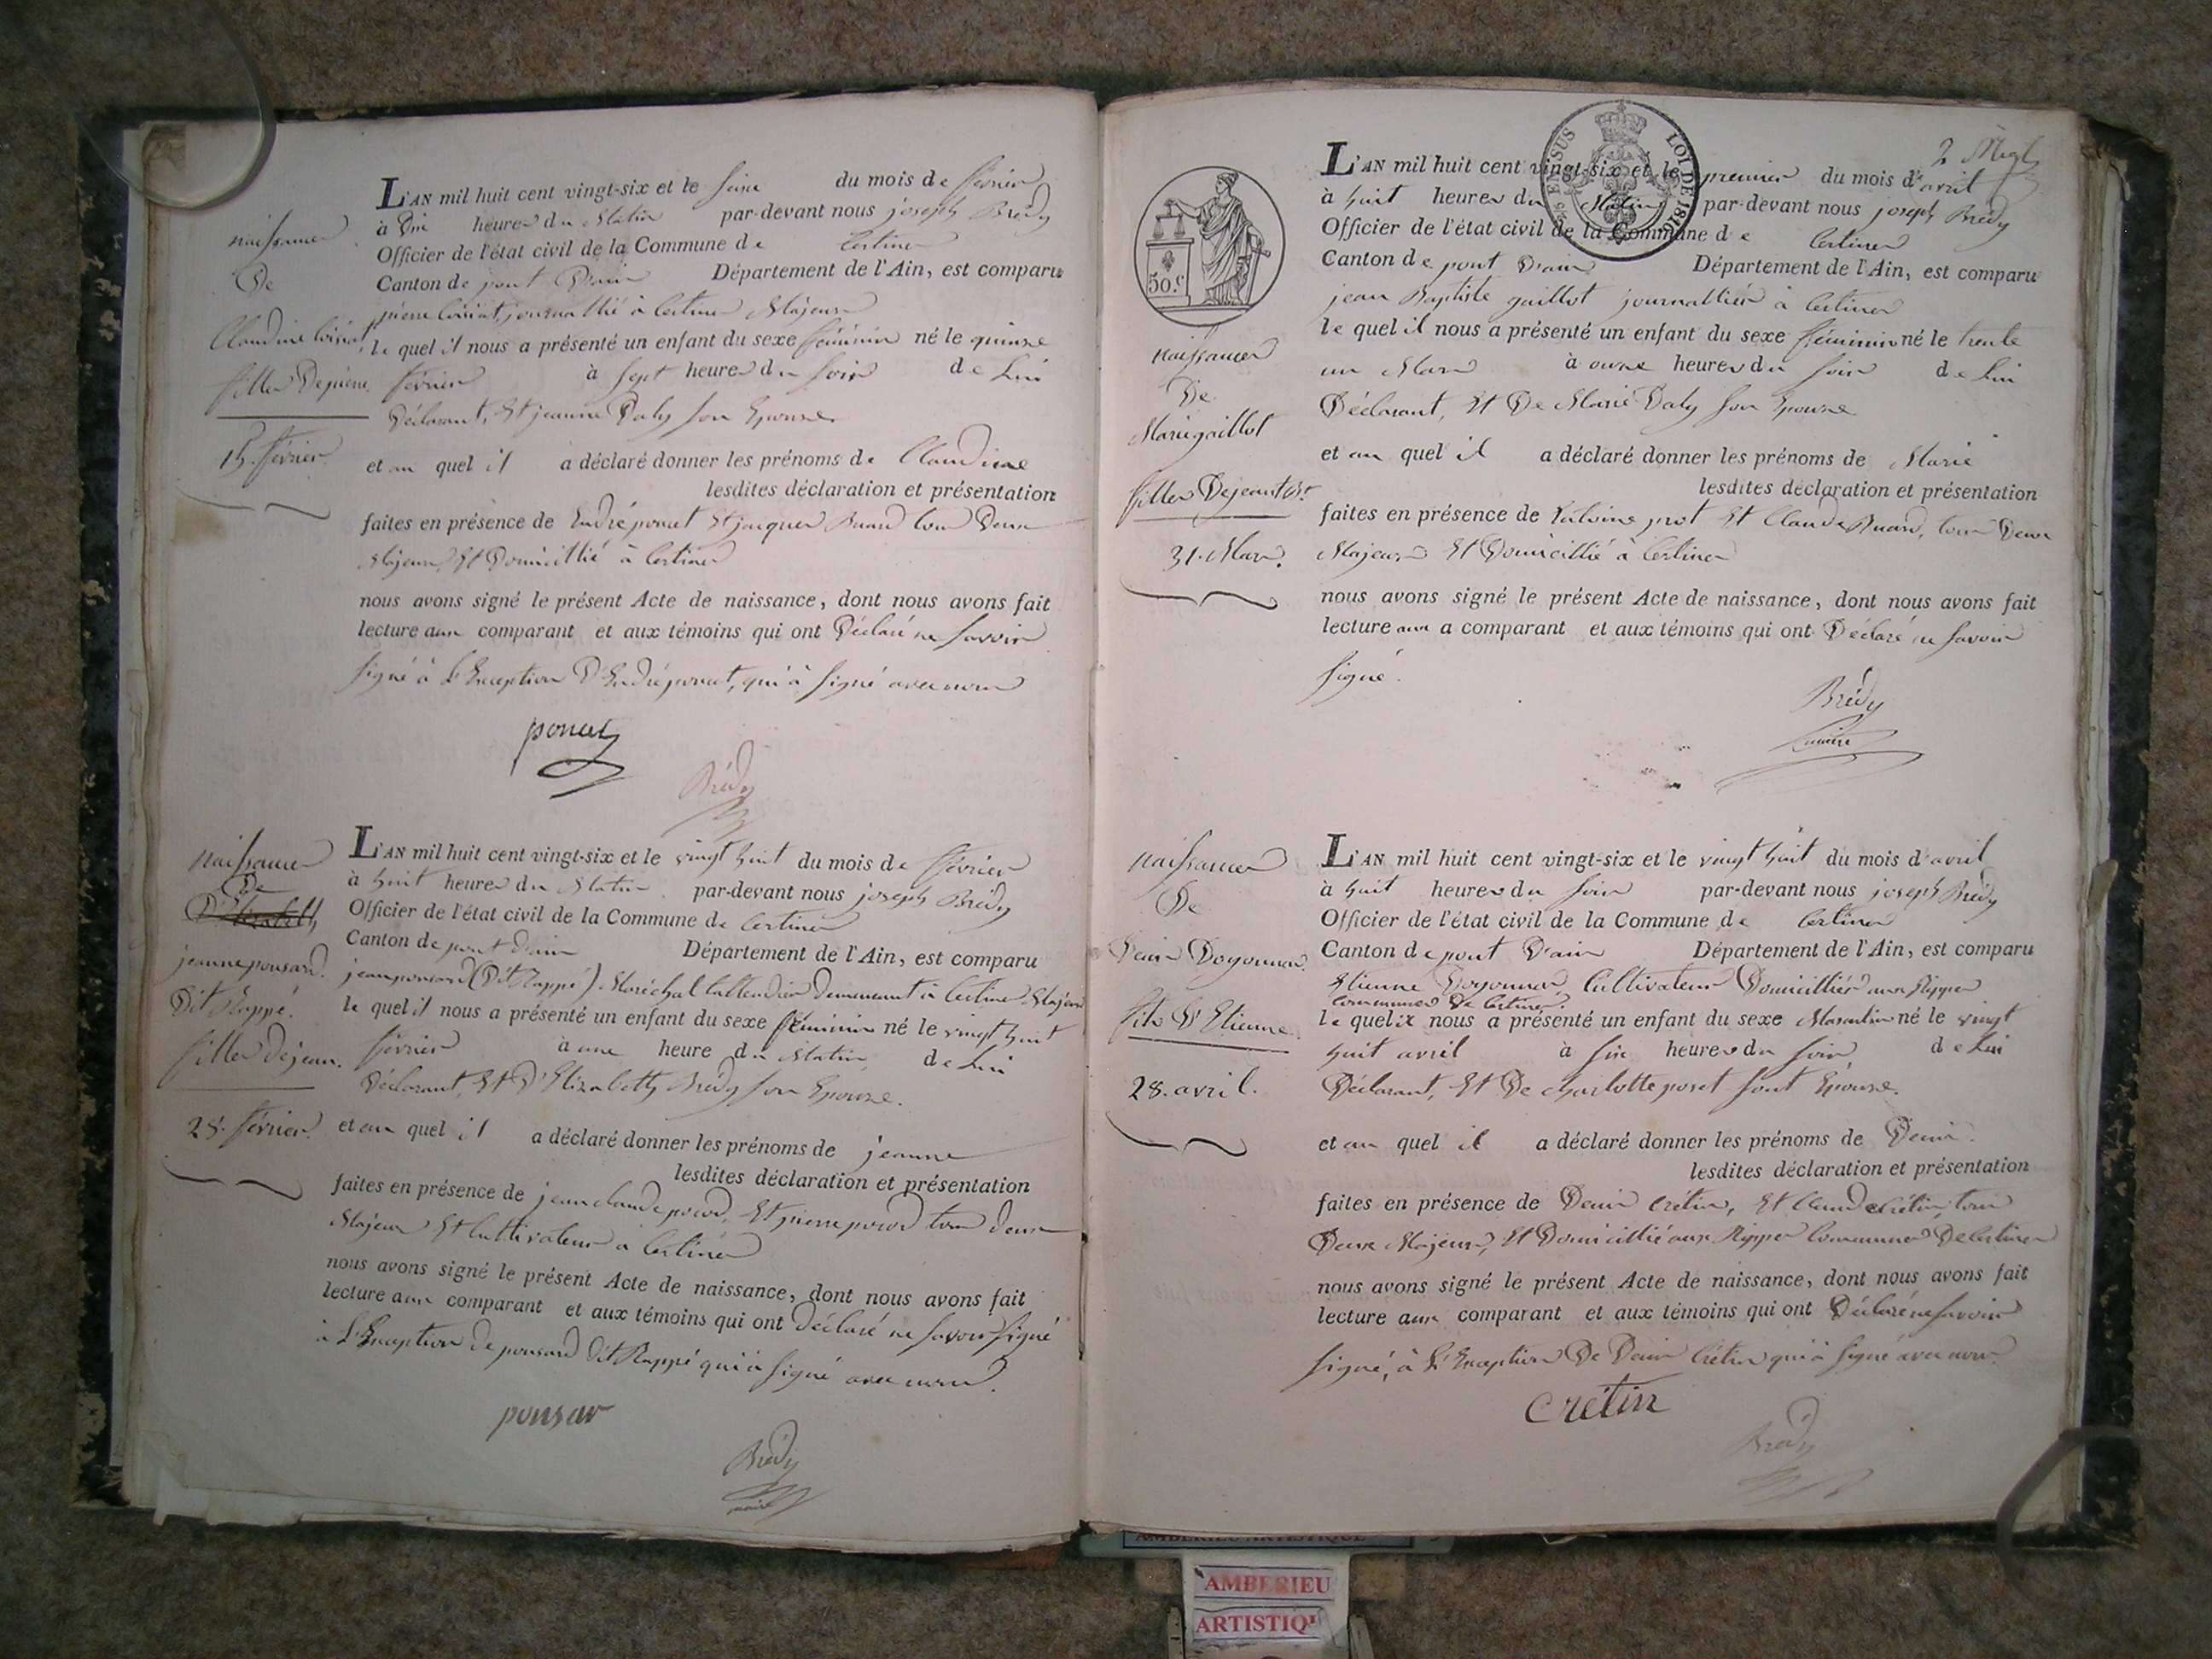 naissance
De
Claudine
fille De pierre
15. février
L'AN mil huit cent vingt-six et le seize du mois de février
à Dix heures du Matin par-devant nous joseph Brédy
Officier de l'état civil de la Commune de Certines
Canton de pont D'ain Département de l'Ain, est comparu
pierre journallié à Certines Majeur
le quel il nous a présenté un enfant du sexe féminin né le quinze
février à sept heures du soir de Lui
Déclarant, Et jeanne Daly son Epouse
et au quel il a déclaré donner les prénoms de Claudine
lesdites déclaration et présentation
faites en présence de André poncet Et jacques Buard tous Deux
Majeurs Et Domicillié à Certines
nous avons signé le présent Acte de naissance, dont nous avons fait
lecture aux comparant et aux témoins qui ont Déclaré ne savoir
signé à L'Exception D'André poncet, qui à signé avec nous
poncet
Brédy
naissance
De
jeanne ponsard.
Dit Rappé.
fille de jean.
28. février.
L'AN mil huit cent vingt-six et le vingt huit du mois de février
à huit heures du Matin par-devant nous joseph Brédy
Officier de l'état civil de la Commune de Certines
Canton de pont d'ain Département de l'Ain, est comparu
jean ponsard (Dit Rappé) Maréchal demeurant à Certines Majeur
le quel il nous a présenté un enfant du sexe féminin né le vingt huit
février à une heure du Matin de Lui
Déclarant, Et D'Elizabeth Brédy son Epouse.
et au quel il a déclaré donner les prénoms de jeanne
lesdites déclaration et présentation
faites en présence de jean claude Et pierre tous deux
Majeur Et Cultivateur à Certines
nous avons signé le présent Acte de naissance, dont nous avons fait
lecture aux comparant et aux témoins qui ont déclaré ne savoir signé
à L'Exception de ponsard dit Rappé qui à signé avec nous.
ponsar
Brédy
maire
2
50.c
LOI DE 1816
naissance
De
Marie gaillot
fille De jean Bte
31. Mars.
L'AN mil huit cent vingt-six et le premier du mois d'avril
à huit heures du Matin par-devant nous joseph Brédy
Officier de l'état civil de la Commune de Certines
Canton de pont D'ain Département de l'Ain, est comparu
jean Baptiste gaillot journallier à Certines
le quel il nous a présenté un enfant du sexe féminin né le trente
un Mars à onze heures du soir de Lui
Déclarant, Et De Marie Daly son Epouse
et au quel il a déclaré donner les prénoms de Marie
lesdites déclaration et présentation
faites en présence de Antoine prot Et Claude Buard, tous Deux
Majeurs Et Domicillié à Certines
nous avons signé le présent Acte de naissance, dont nous avons fait
lecture aux a comparant et aux témoins qui ont Déclaré ne savoir
signé.
Brédy
naissance
De
Denis Doyonnas.
fils D'Etienne.
28. avril.
L'AN mil huit cent vingt-six et le vingt huit du mois d'avril
à huit heures du soir par-devant nous joseph Brédy
Officier de l'état civil de la Commune de Certines
Canton de pont D'ain Département de l'Ain, est comparu
Etienne Doyonnas, Cultivateur Domicillier aux Rippes
Communes De Certines.
le quel il nous a présenté un enfant du sexe Masculin né le vingt
huit avril à six heures du soir de Lui
Déclarant, Et De charlotte poset sont Epouse.
et au quel il a déclaré donner les prénoms de Denis.
lesdites déclaration et présentation
faites en présence de Denis Crétin, Et Claude Crétin, tous
Deux Majeurs, Et Domicillié aux Rippes Communes De Certines
nous avons signé le présent Acte de naissance, dont nous avons fait
lecture aux comparant et aux témoins qui ont Déclaré ne savoir
signé, à L'Exception De Denis Crétin qui à signé avec nous.
crétin
Brédy
AMBERIEU ARTISTIQUE
AMBERIEU
ARTISTIQU